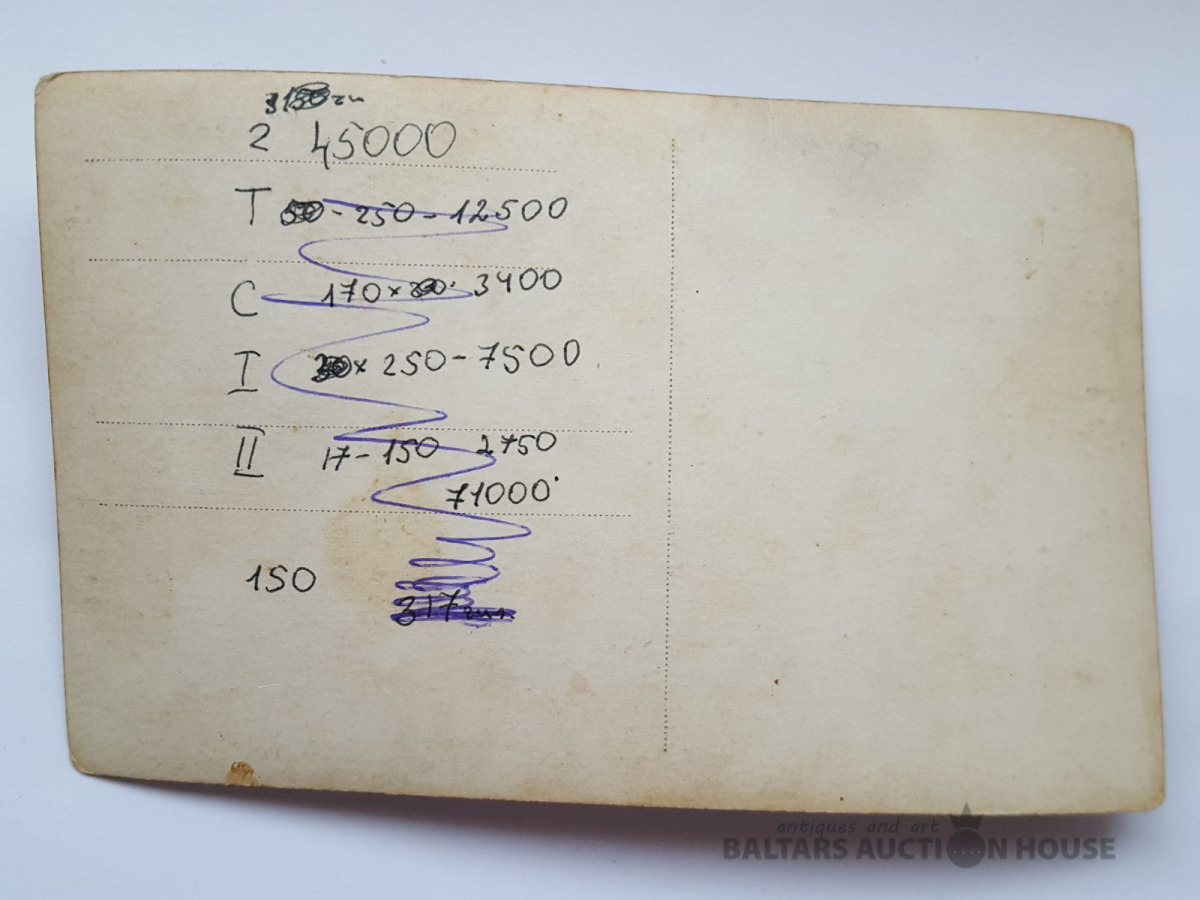 2 45000
T 50 - 250 - 12500
C 170 x 20 - 3400
I 30 x 250 - 7500
II 17 - 150 2750
71000
150
317
antiques and art
BALTARS AUCTION HOUSE